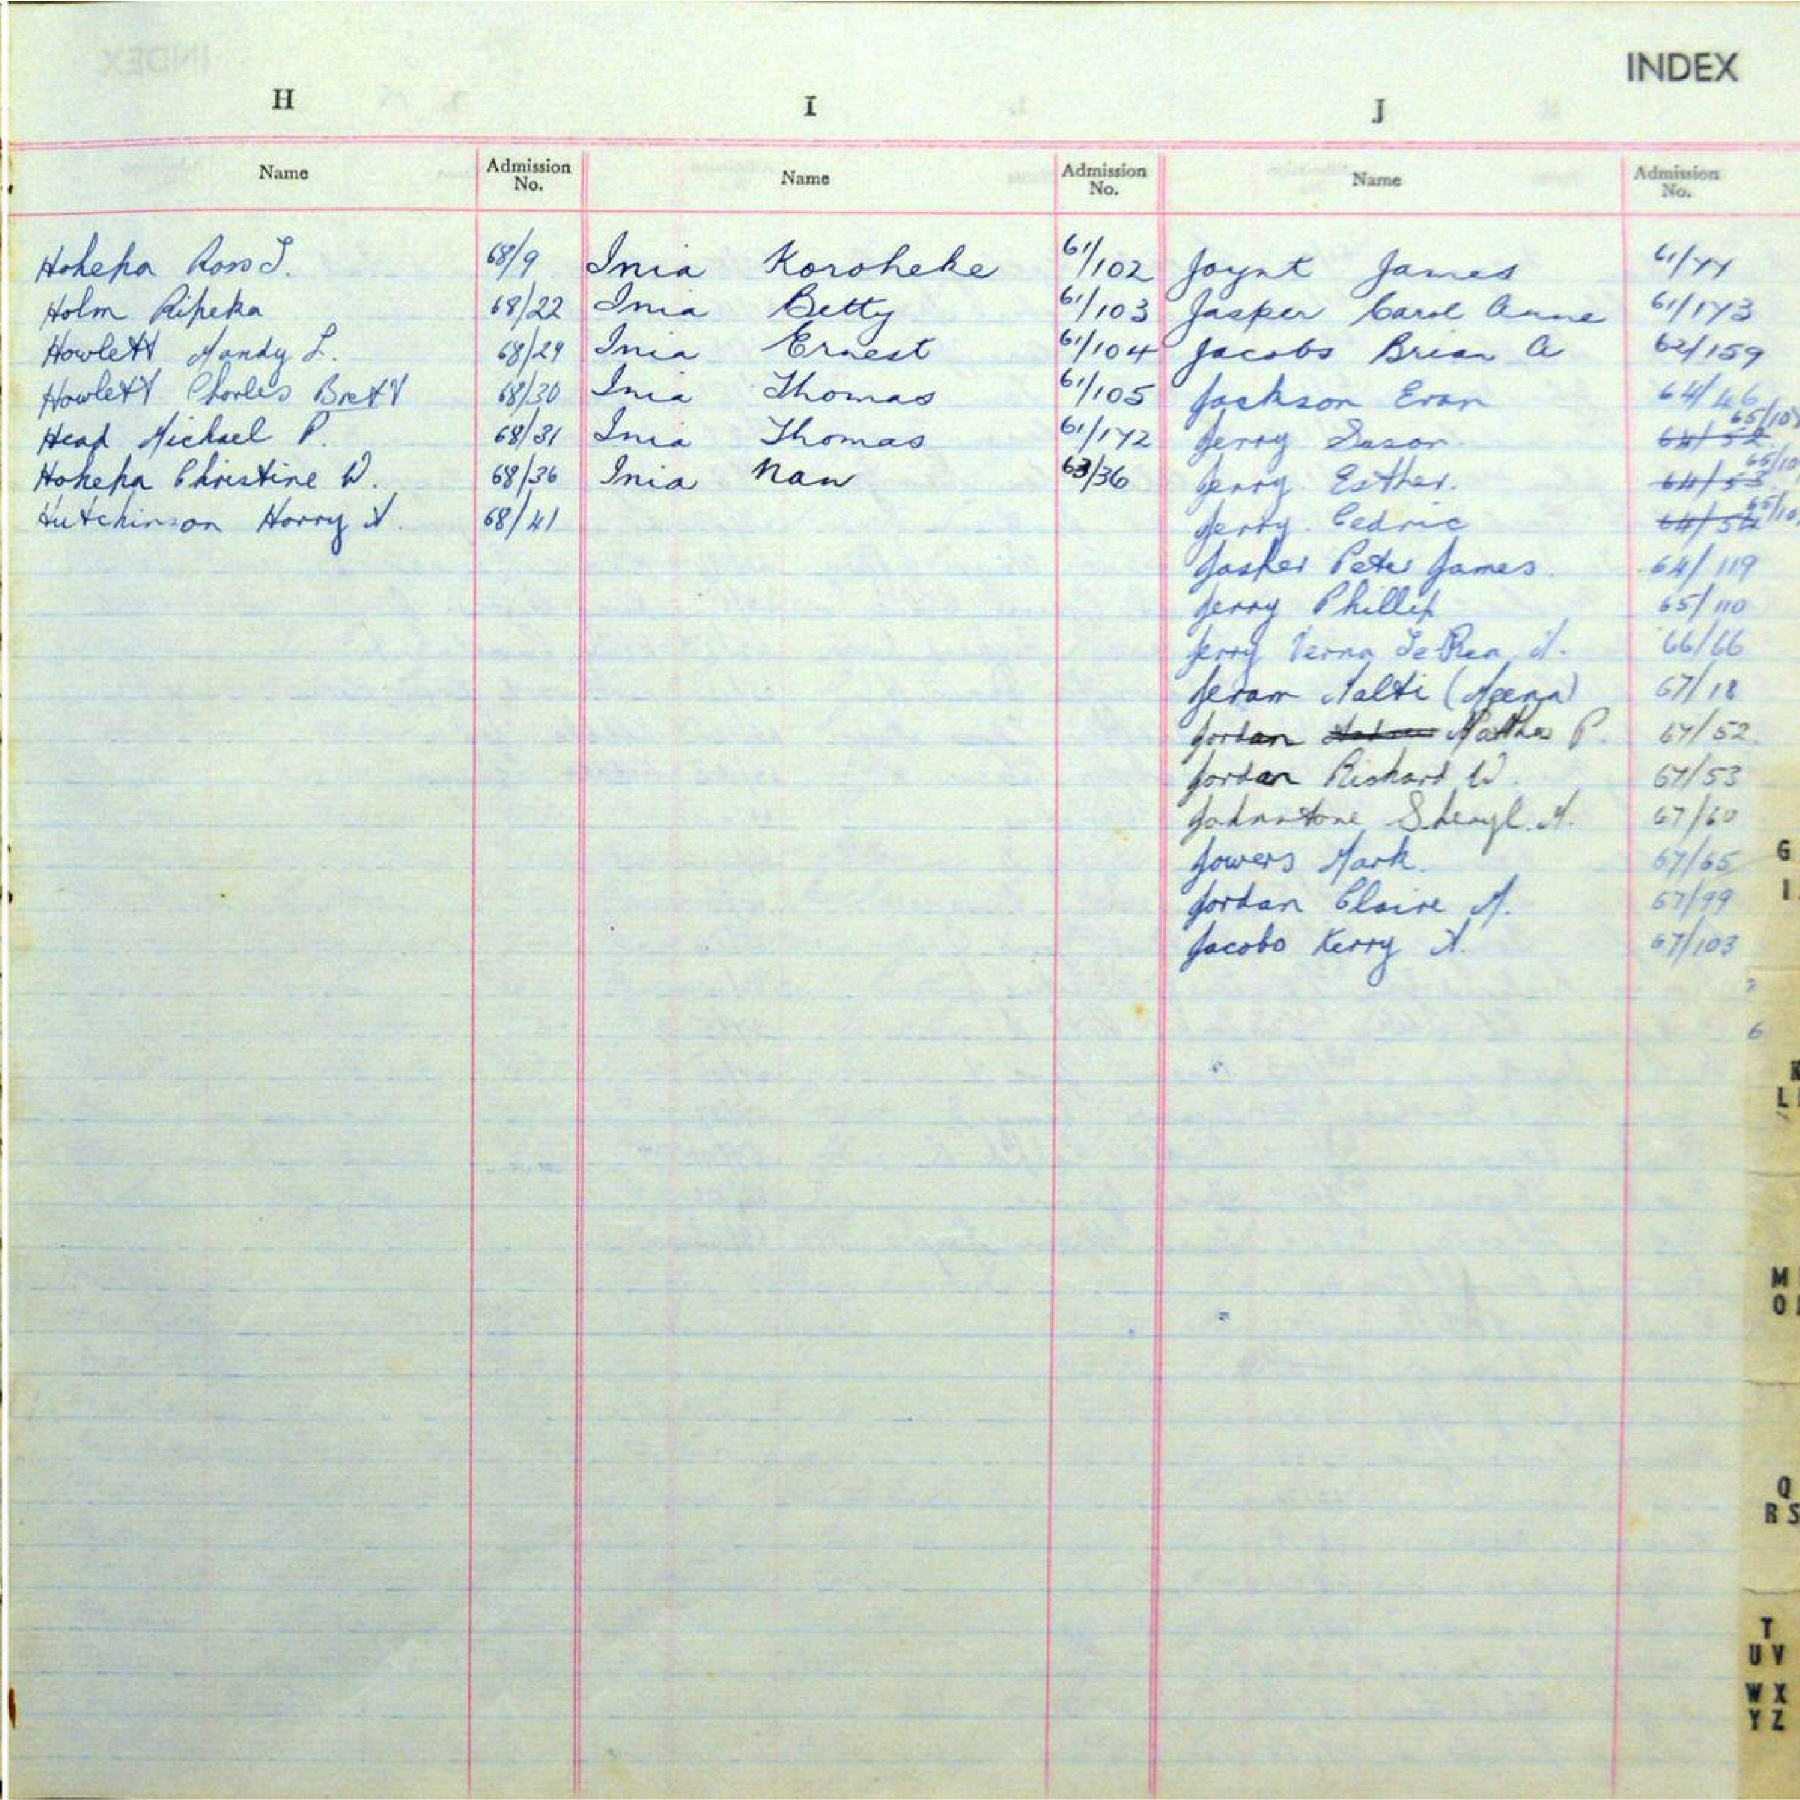 INDEX
H
I
J
Name
Admission No.
Name
Admission No.
Name
Admission No.
Hohepa Ross J. 68/9
Holm Ripeka 68/22
Howlett Mandy L. 68/29
Howlett Charles Brett 68/30
Head Michael P. 68/31
Hohepa Christine W. 68/36
Hutchinson Harry A. 68/41
Inia Koroheke 61/102
Inia Betty 61/103
Inia Ernest 61/104
Inia Thomas 61/105
Inia Thomas 61/172
Inia Nan 63/36
Joynt James 61/77
Jasper Carol Anne 61/173
Jacobs Brian A 62/159
Jackson Evan 64/46
Jerry Susan 64/52 65/107
Jerry Esther. 64/53 65/10
Jerry. Cedric 64/54 65/10
Jasper Peter James. 64/119
Jerry Phillip 65/110
Jerry Verna Te Rea 66/66
Jeram Malti (Meena) 67/18
Jordan Matthew P. 67/52
Jordan Richard W. 67/53
Johnstone Sheryl. M. 67/60
Jowers Mark. 67/65
Jordan Claire M. 67/99
Jacobs Kerry A. 67/103
G
I
L
M
O
Q
R S
T
U V
W X
Y Z